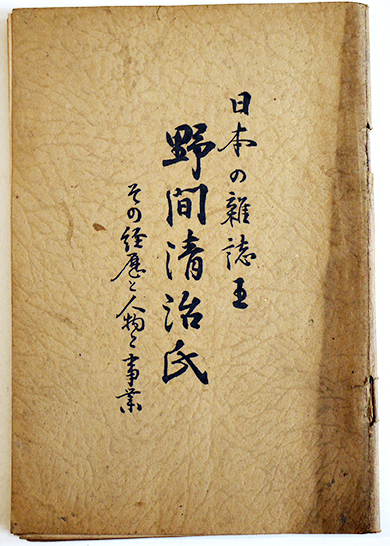 日本の雜誌王
野間清治氏
その経歴と人物と事業